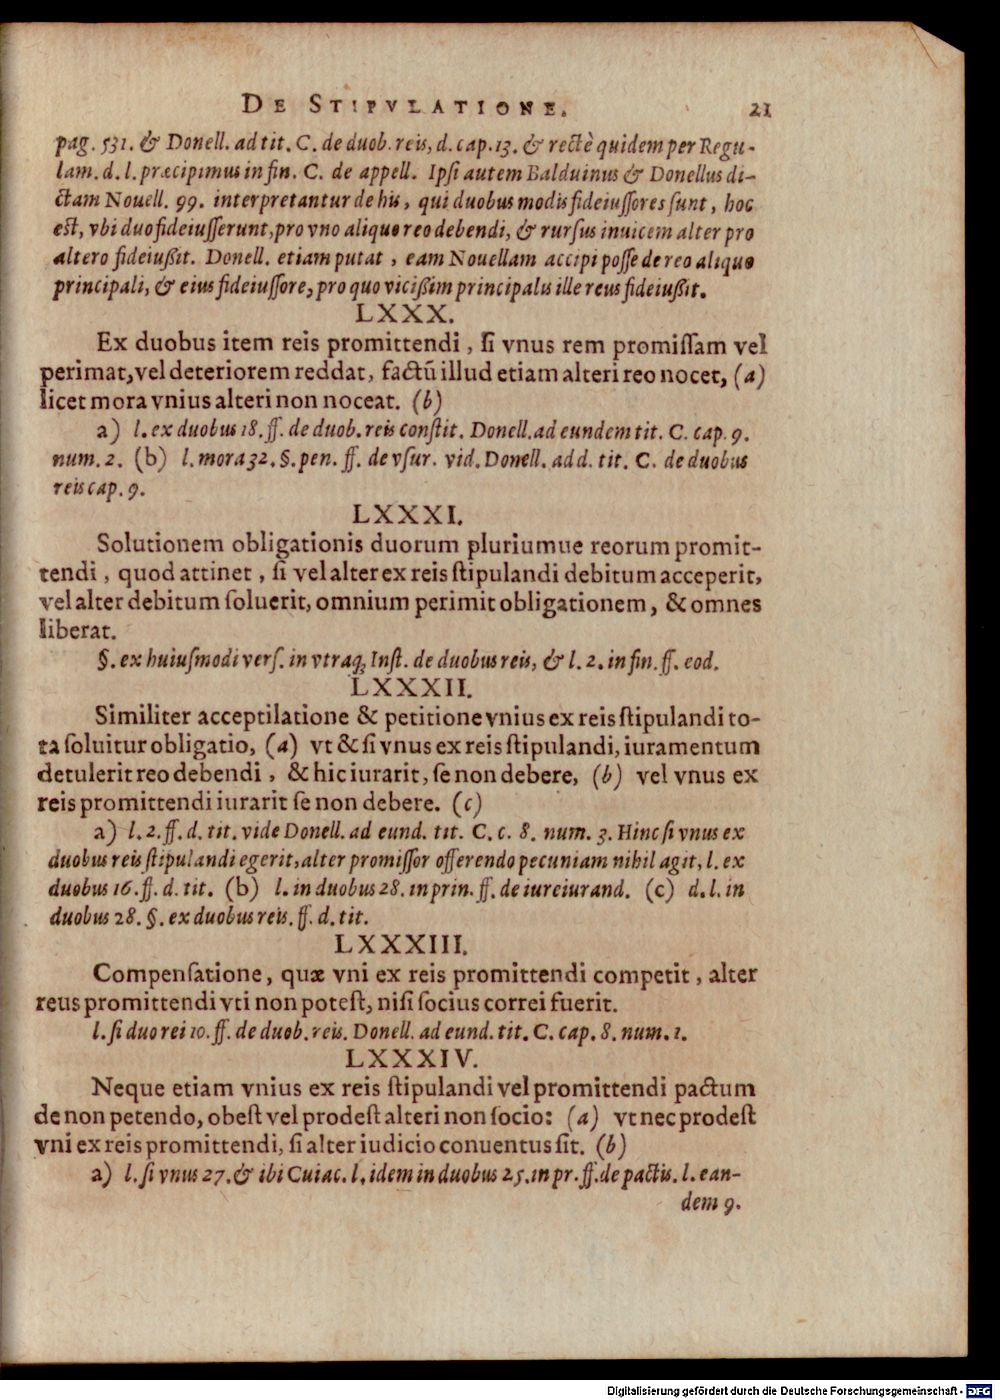 DE STIPVLATIONE. 21
pag. 531. & Donell. ad tit. C. de duob. reis, d. cap. 13. & rectè quidem per Regu-
lam. d. l. præcipimus in fin. C. de appell. Ipſi autem Balduinus & Donellus di-
ctam Nouell. 99. interpretantur de his, qui duobus modis fideiuſſores ſunt, hoc
est, vbi duo fideiuſſerunt, pro vno aliquo reo debendi, & rurſus inuicem alter pro
altero fideiußit. Donell. etiam putat, eam Nouellam accipi poſſe de reo aliquo
principali, & eius fideiuſſore, pro quo vicißim principalis ille reus fideiußit.
LXXX.
Ex duobus item reis promittendi, ſi vnus rem promiſſam vel
perimat, vel deteriorem reddat, factū illud etiam alteri reo nocet, (a)
licet mora vnius alteri non noceat. (b)
a) l. ex duobus 18. ff. de duob. reis conſtit. Donell. ad eundem tit. C. cap. 9.
num. 2. (b) l. mora 32. §. pen. ff. de vſur. vid. Donell. ad d. tit. C. de duobus
reis cap. 9.
LXXXI.
Solutionem obligationis duorum pluriumue reorum promit-
tendi, quod attinet, ſi vel alter ex reis ſtipulandi debitum acceperit,
vel alter debitum ſoluerit, omnium perimit obligationem, & omnes
liberat.
§. ex huiuſmodi verſ. in vtraq; Inſt. de duobus reis, & l. 2. in fin. ff. eod.
LXXXII.
Similiter acceptilatione & petitione vnius ex reis ſtipulandi to-
ta ſoluitur obligatio, (a) vt & ſi vnus ex reis ſtipulandi, iuramentum
detulerit reo debendi, & hic iurarit, ſe non debere, (b) vel vnus ex
reis promittendi iurarit ſe non debere. (c)
a) l. 2. ff. d. tit. vide Donell. ad eund. tit. C. c. 8. num. 3. Hinc ſi vnus ex
duobus reis ſtipulandi egerit, alter promiſſor offerendo pecuniam nihil agit, l. ex
duobus 16. ff. d. tit. (b) l. in duobus 28. in prin. ff. de iureiurand. (c) d. l. in
duobus 28. §. ex duobus reis. ff. d. tit.
LXXXIII.
Compenſatione, quæ vni ex reis promittendi competit, alter
reus promittendi vti non poteſt, niſi ſocius correi fuerit.
l. ſi duo rei 10. ff. de duob. reis. Donell. ad eund. tit. C. cap. 8. num. 1.
LXXXIV.
Neque etiam vnius ex reis ſtipulandi vel promittendi pactum
de non petendo, obeſt vel prodeſt alteri non ſocio: (a) vt nec prodeſt
vni ex reis promittendi, ſi alter iudicio conuentus ſit. (b)
a) l. ſi vnus 27. & ibi Cuiac. l. idem in duobus 25. in pr. ff. de pactis. l. ean-
dem 9.
Digitalisierung gefördert durch die Deutsche Forschungsgemeinschaft - DFG